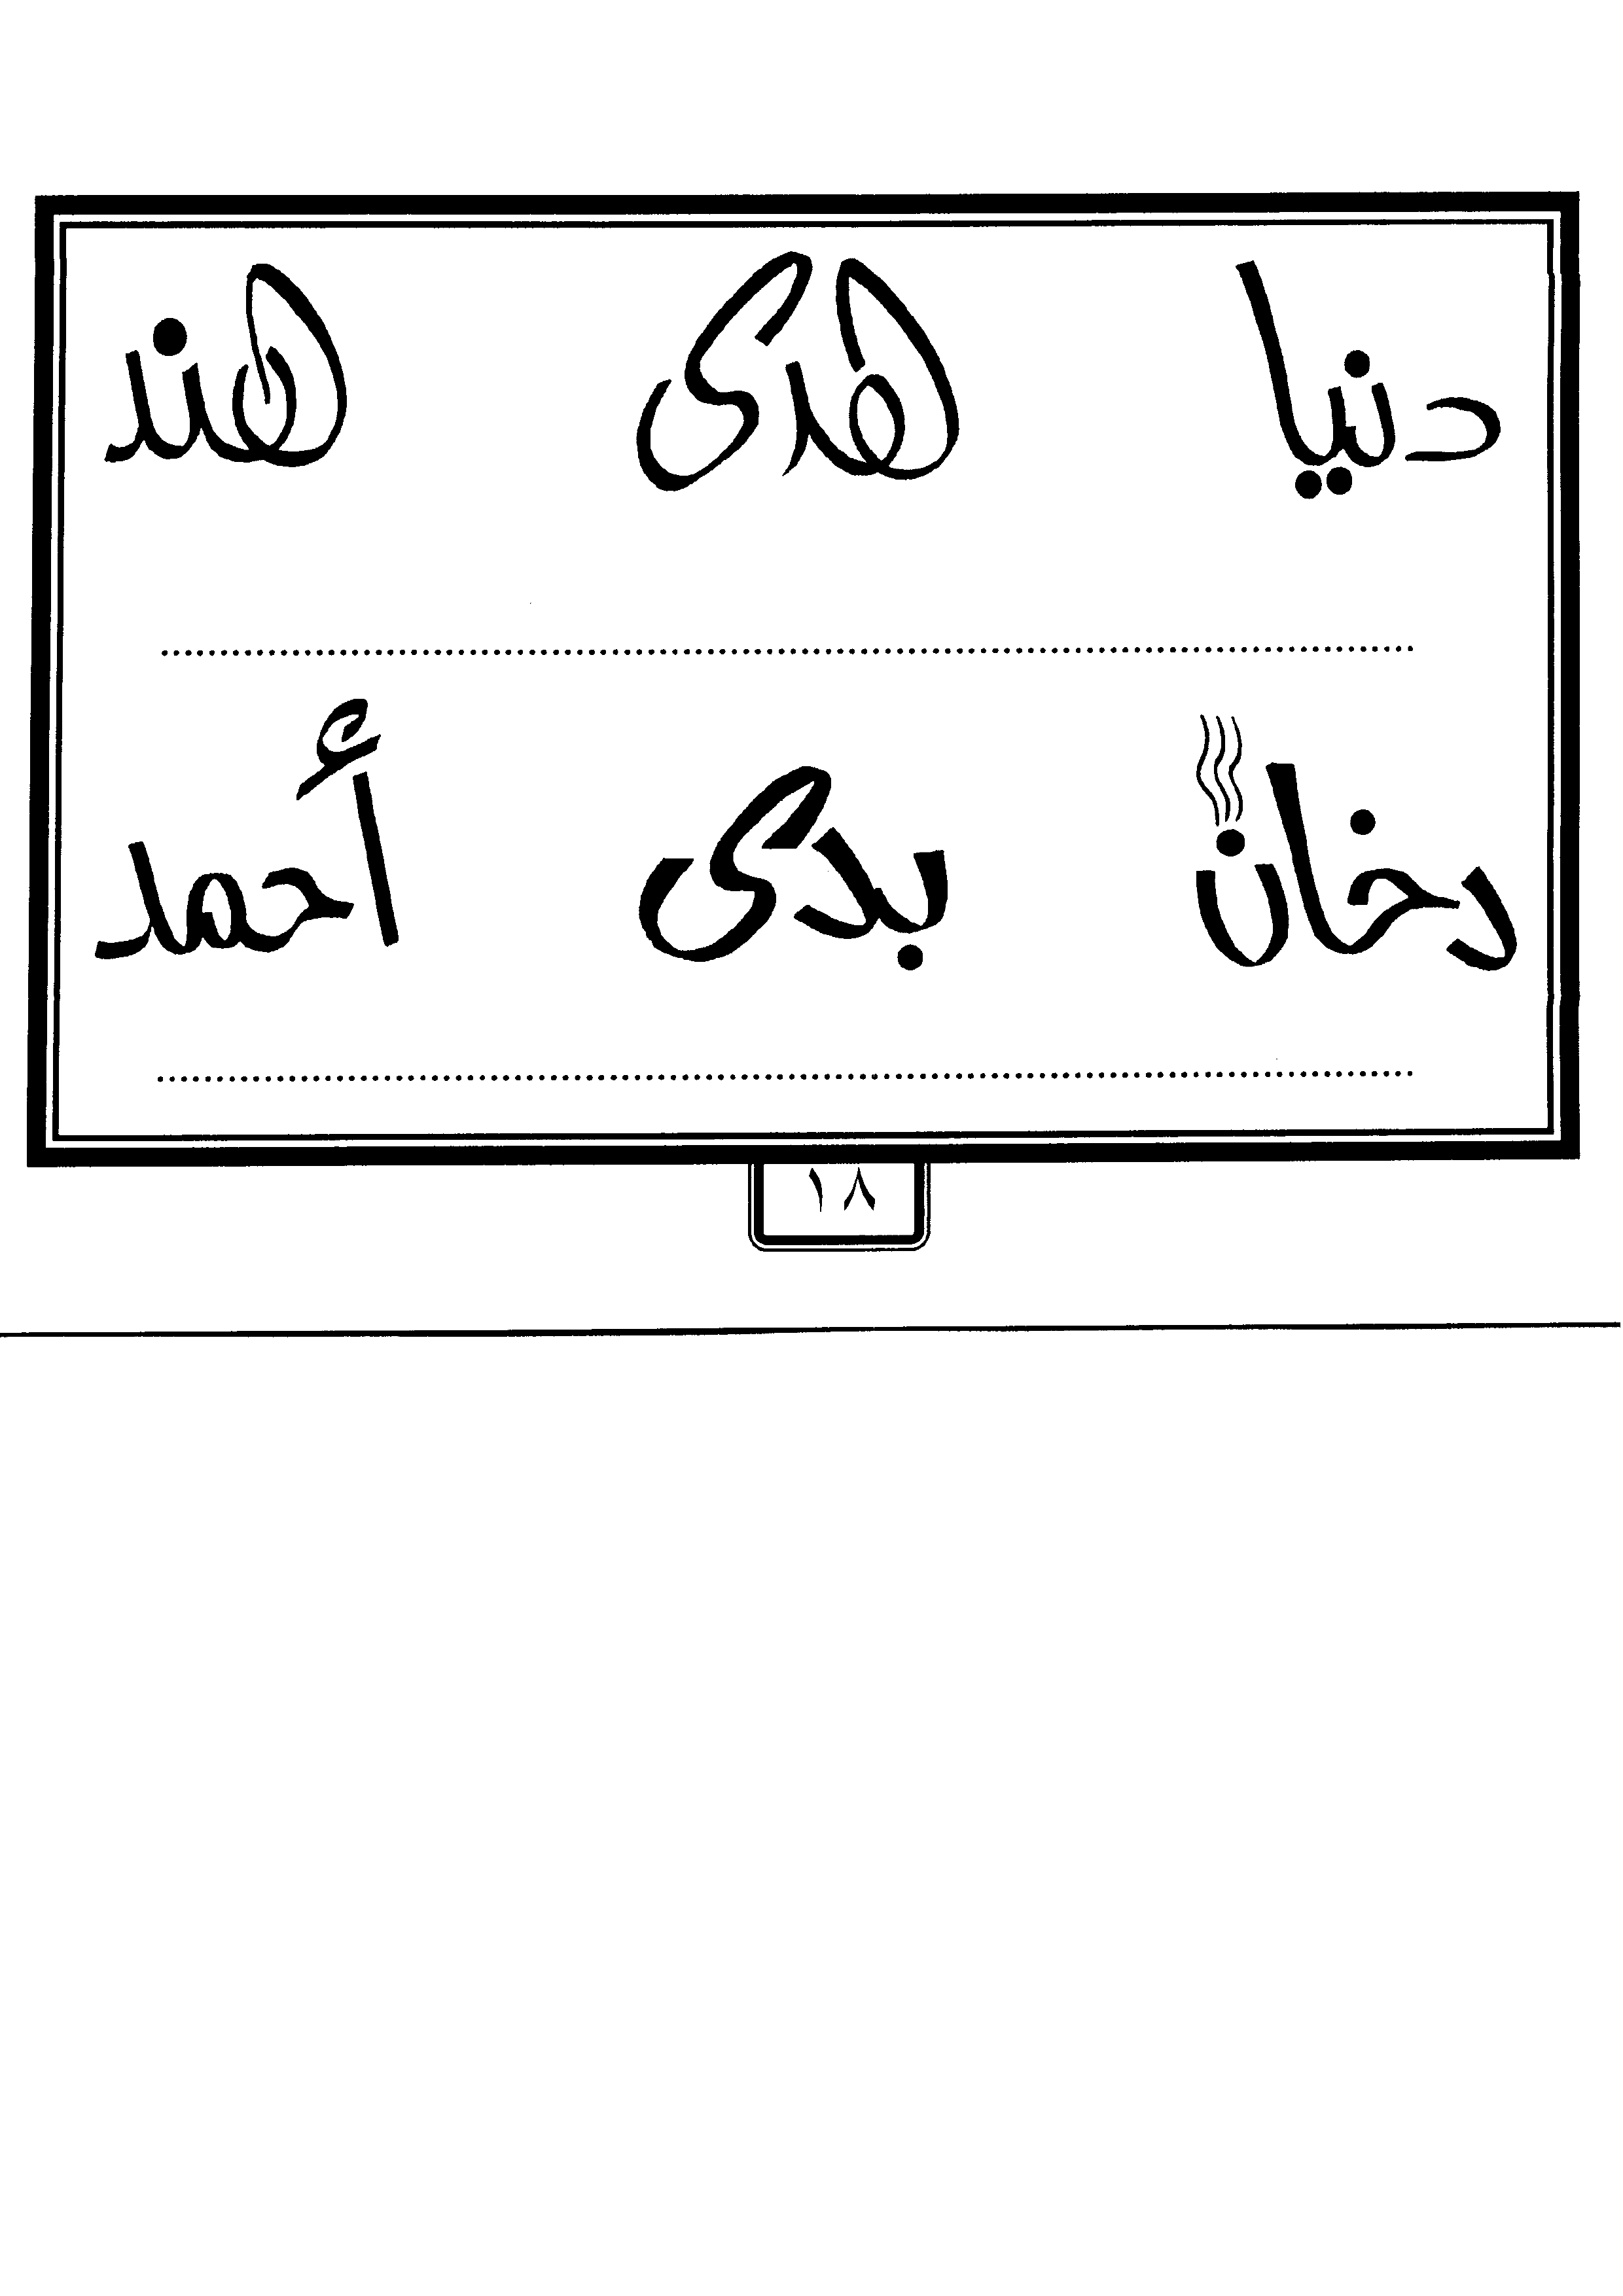 دنيا هدى هند
دخان بدى أحمد
١٨